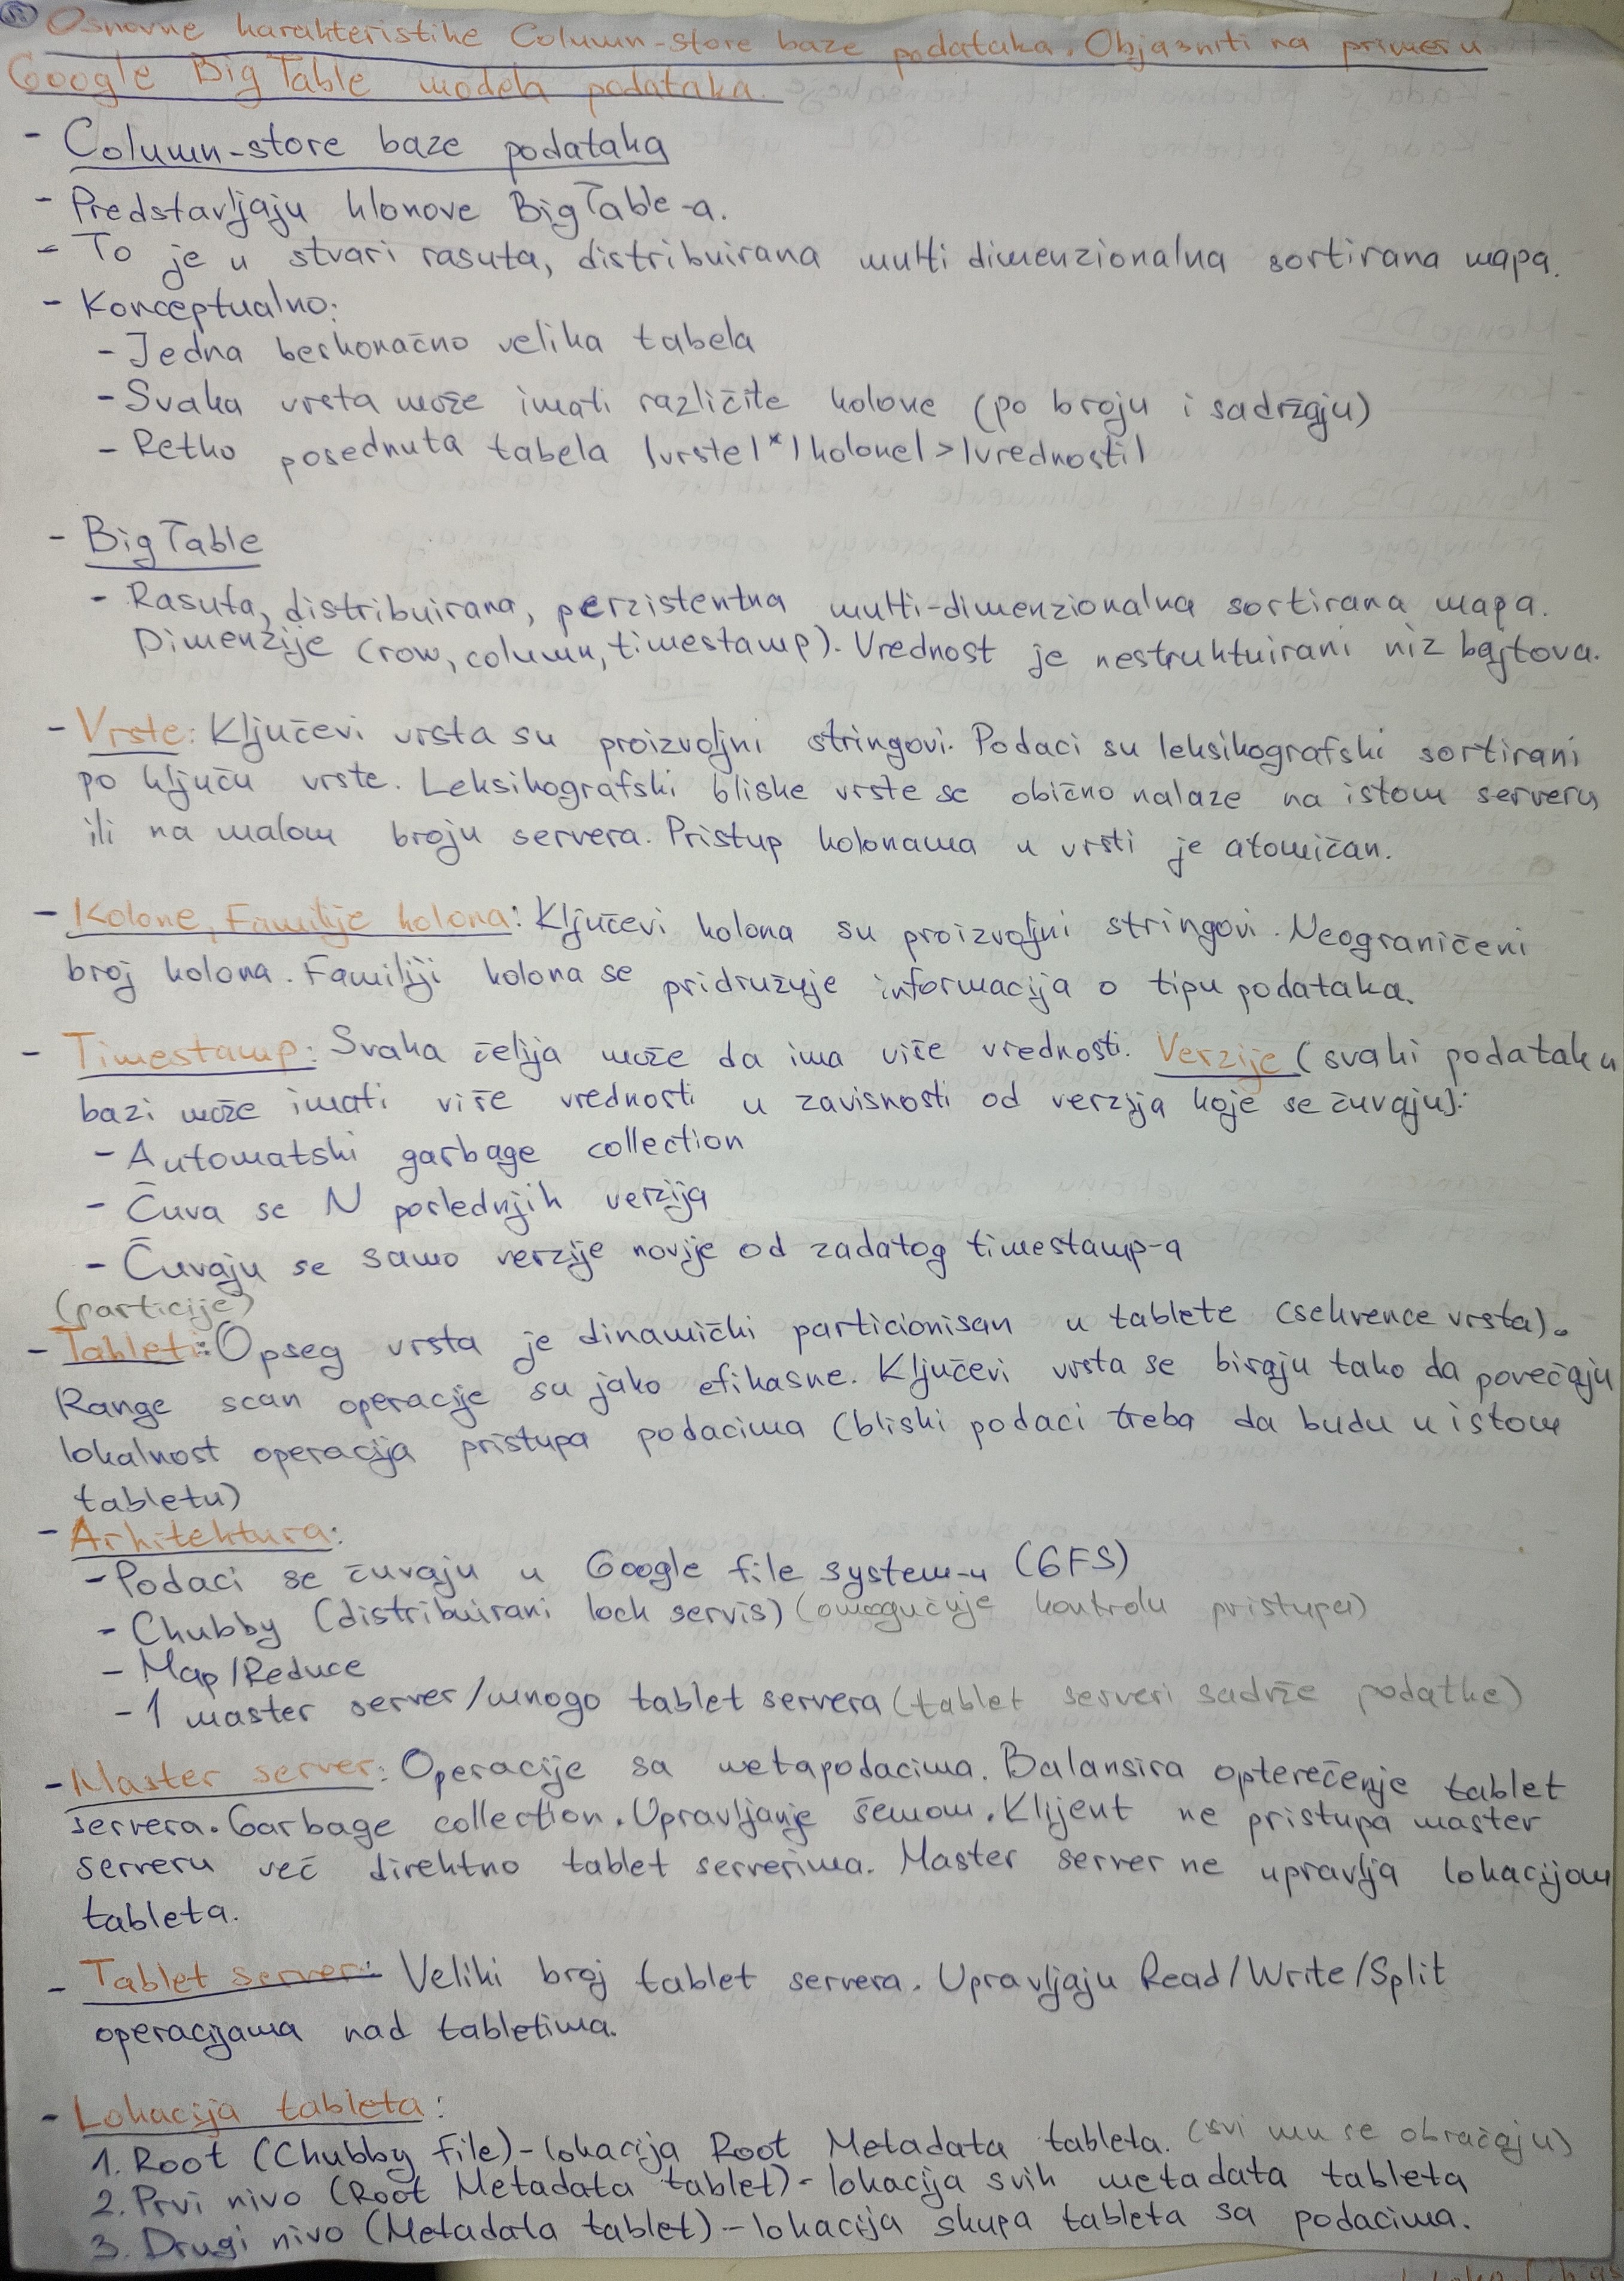 Osnovne karakteristike Column-store baze podataka. Objasniti na primeru
Google BigTable modela podataka.
- Column-store baze podataka
- Predstavljaju klonove BigTable-a.
- To je u stvari rasuta, distribuirana multi dimenzionalna sortirana mapa.
- Konceptualno:
- Jedna beskonačno velika tabela
- Svaka vrsta može imati različite kolone (po broju i sadržaju)
- Retko posednuta tabela |vrste|*|kolone|>|vrednosti|
- BigTable
- Rasuta, distribuirana, perzistentna multi-dimenzionalna sortirana mapa.
Dimenzije (row, column, timestamp). Vrednost je nestruktuirani niz bajtova.
- Vrste: Ključevi vrsta su proizvoljni stringovi. Podaci su leksikografski sortirani
po ključu vrste. Leksikografski bliske vrste se obično nalaze na istom serveru
ili na malom broju servera. Pristup kolonama u vrsti je atomičan.
- Kolone, Familije kolona: Ključevi kolona su proizvoljni stringovi. Neograničeni
broj kolona. Familiji kolona se pridružuje informacija o tipu podataka.
- Timestamp: Svaka čelija može da ima više vrednosti. Verzije (svaki podatak u
bazi može imati više vrednosti u zavisnosti od verzija koje se čuvaju):
- Automatski garbage collection
- Čuva se N poslednjih verzija
- Čuvaju se samo verzije novije od zadatog timestamp-a
(particije)
- Tableti: Opseg vrsta je dinamički particionisan u tablete (sekvence vrsta).
Range scan operacije su jako efikasne. Ključevi vrsta se biraju tako da povečaju
lokalnost operacija pristupa podacima (bliski podaci treba da budu u istom
tabletu)
- Arhitektura:
- Podaci se čuvaju u Google file system-u (GFS)
- Chubby (distribuirani lock servis) (omogučuje kontrolu pristupa)
- Map/Reduce
- 1 master server/mnogo tablet servera (tablet serveri sadrže podatke)
- Master server: Operacije sa metapodacima. Balansira opterečenje tablet
servera. Garbage collection. Upravljanje šemom. Klijent ne pristupa master
serveru več direktno tablet serverima. Master server ne upravlja lokacijom
tableta.
- Tablet server: Veliki broj tablet servera. Upravljaju Read/Write/Split
operacijama nad tabletima.
- Lokacija tableta:
1. Root (Chubby file) - lokacija Root Metadata tableta. (svi mu se obračaju)
2. Prvi nivo (Root Metadata tablet) - lokacija svih metadata tableta
3. Drugi nivo (Metadata tablet) - lokacija skupa tableta sa podacima.